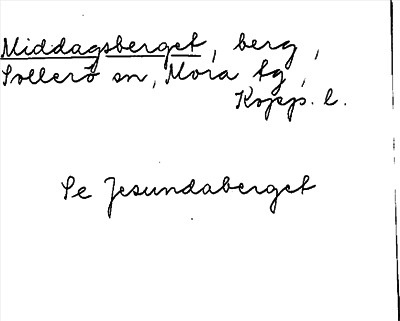 Middagsberget, berg,
Sollerö sn, Mora tg,
Kopp. l.
Se Jesundaberget